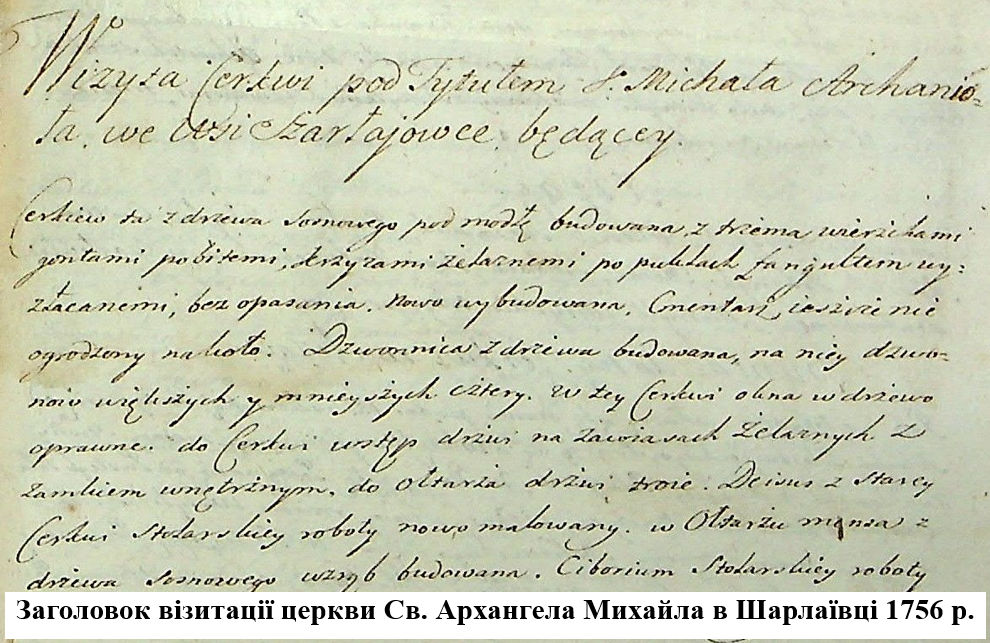 Wizyta Cerkwi pod Tytułem S. Michała Archanio-
ła, we Wsi Szarłajowce będącey.
Cerkiew ta z drzewa sosnowego pod modłę budowana, z trzema wierzchami
gontami pobitemi, krzyżami żelaznemi po pukłach fangultem wy-
złacanemi, bez opasania. nowo wybudowana, Cmentarz ieszcze nie
ogrodzony nakoło. Dzwonnica z drzewa budowana, na niey dzwo-
now większych y mnieyszych cztery. w tey Cerkwi okna w drzewo
oprawne. do Cerkwi wstęp drzwi na zawiasach żelaznych z
zamkiem wnętrznym. do Ołtarza drzwi troie. Deisus z Starey
Cerkwi Stolarskiey roboty nowo malowany. w Ołtarzu mensa z
drzewa Sosnowego wzrąb budowana. Ciborium Stolarskiey roboty
Заголовок візитації церкви Св. Архангела Михайла в Шарлаївці 1756 р.